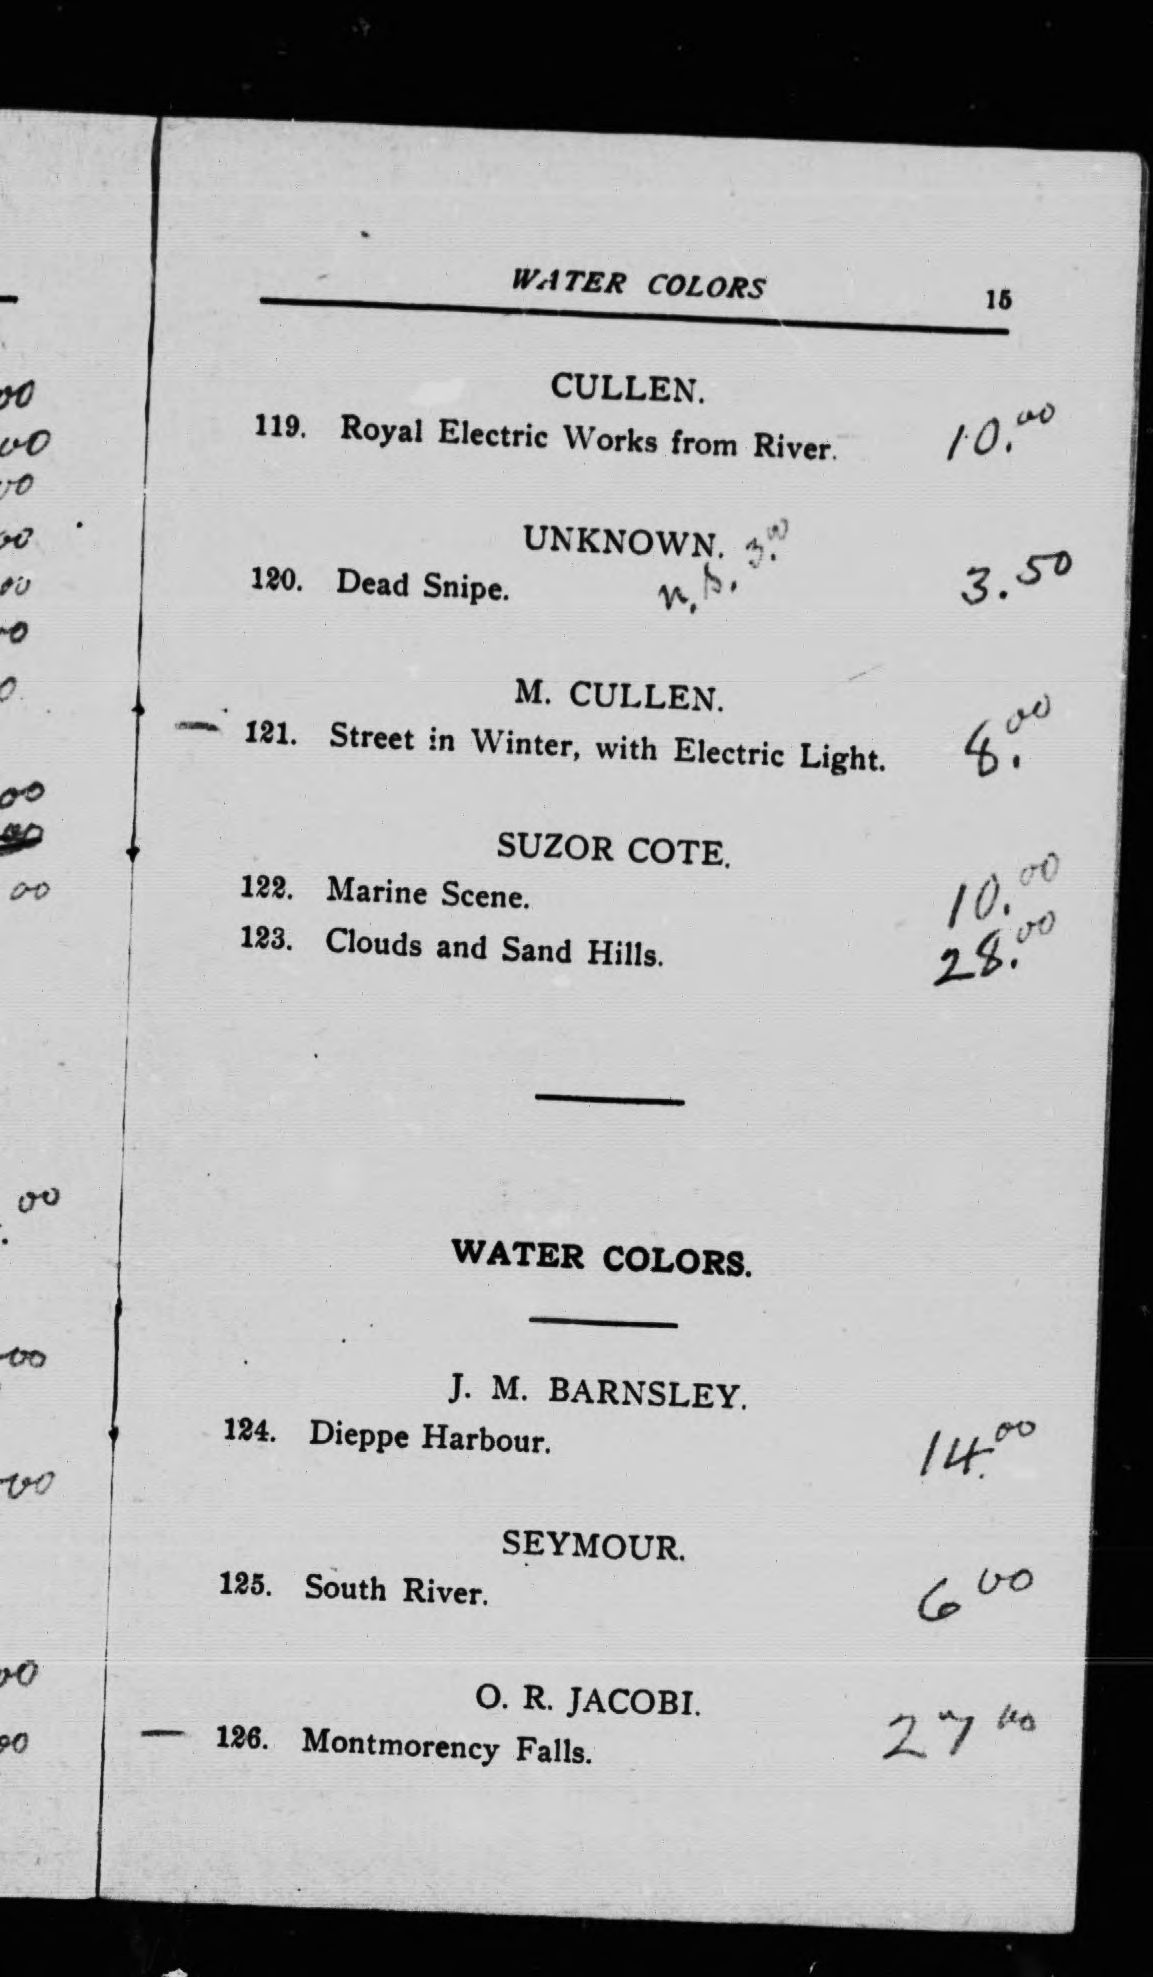 WATER COLORS 15
CULLEN.
119. Royal Electric Works from River. 10.00
UNKNOWN. 3.00
120. Dead Snipe. n.s. 3.50
M. CULLEN.
— 121. Street in Winter, with Electric Light. 8.00
SUZOR COTE.
122. Marine Scene. 10.00
123. Clouds and Sand Hills. 28.00
WATER COLORS.
J. M. BARNSLEY.
124. Dieppe Harbour. 14.00
SEYMOUR.
125. South River. 6 00
O. R. JACOBI.
— 126. Montmorency Falls. 27 00